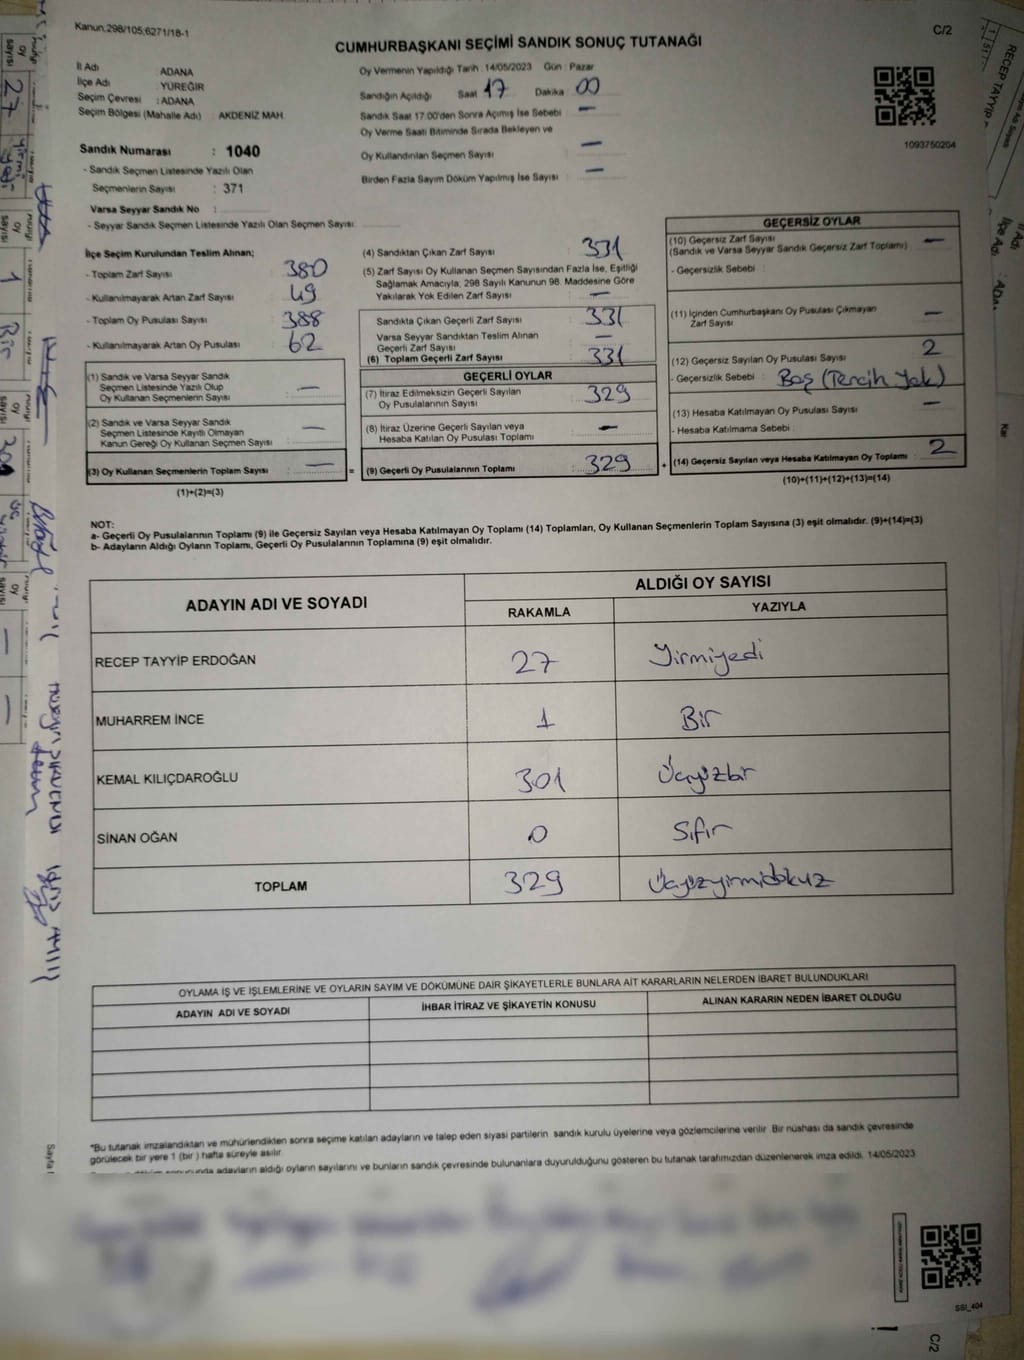 Kanun,298/105,6271/18-1
C/2
CUMHURBAŞKANI SEÇİMİ SANDIK SONUÇ TUTANAĞI
İl Adı : ADANA
İlçe Adı : YÜREĞİR
Seçim Çevresi : ADANA
Seçim Bölgesi (Mahalle Adı) : AKDENİZ MAH.
Sandık Numarası : 1040
- Sandık Seçmen Listesinde Yazılı Olan
Seçmenlerin Sayısı : 371
Varsa Seyyar Sandık No :
- Seyyar Sandık Seçmen Listesinde Yazılı Olan Seçmen Sayısı:
Oy Vermenin Yapıldığı Tarih :14/05/2023 Gün : Pazar
Sandığın Açıldığı Saat 17 Dakika 00
Sandık Saat 17.00'den Sonra Açımış İse Sebebi : —
Oy Verme Saati Bitiminde Sırada Bekleyen ve
Oy Kullandırılan Seçmen Sayısı : —
Birden Fazla Sayım Döküm Yapılmış İse Sayısı : —
1093750204
İlçe Seçim Kurulundan Teslim Alınan;
- Toplam Zarf Sayısı : 380
- Kullanılmayarak Artan Zarf Sayısı : 49
- Toplam Oy Pusulası Sayısı : 388
- Kullanılmayarak Artan Oy Pusulası : 62
(1) Sandık ve Varsa Seyyar Sandık
Seçmen Listesinde Yazılı Olup
Oy Kullanan Seçmenlerin Sayısı : —
(2) Sandık ve Varsa Seyyar Sandık
Seçmen Listesinde Kayıtlı Olmayan
Kanun Gereği Oy Kullanan Seçmen Sayısı : —
(3) Oy Kullanan Seçmenlerin Toplam Sayısı : —
(1)+(2)=(3)
=
(4) Sandıktan Çıkan Zarf Sayısı : 331
(5) Zarf Sayısı Oy Kullanan Seçmen Sayısından Fazla İse, Eşitliği
Sağlamak Amacıyla, 298 Sayılı Kanunun 98. Maddesine Göre
Yakılarak Yok Edilen Zarf Sayısı : —
Sandıkta Çıkan Geçerli Zarf Sayısı : 331
Varsa Seyyar Sandıktan Teslim Alınan
Geçerli Zarf Sayısı : —
(6) Toplam Geçerli Zarf Sayısı : 331
GEÇERLİ OYLAR
(7) İtiraz Edilmeksizin Geçerli Sayılan
Oy Pusulalarının Sayısı : 329
(8) İtiraz Üzerine Geçerli Sayılan veya
Hesaba Katılan Oy Pusulası Toplamı : —
(9) Geçerli Oy Pusulalarının Toplamı : 329
+
GEÇERSİZ OYLAR
(10) Geçersiz Zarf Sayısı
(Sandık ve Varsa Seyyar Sandık Geçersiz Zarf Toplamı) : —
- Geçersizlik Sebebi :
(11) İçinden Cumhurbaşkanı Oy Pusulası Çıkmayan
Zarf Sayısı : —
(12) Geçersiz Sayılan Oy Pusulası Sayısı : 2
- Geçersizlik Sebebi : Boş (Tercih Yok)
(13) Hesaba Katılmayan Oy Pusulası Sayısı : —
- Hesaba Katılmama Sebebi :
(14) Geçersiz Sayılan veya Hesaba Katılmayan Oy Toplamı : 2
(10)+(11)+(12)+(13)=(14)
NOT:
a- Geçerli Oy Pusulalarının Toplamı (9) ile Geçersiz Sayılan veya Hesaba Katılmayan Oy Toplamı (14) Toplamları, Oy Kullanan Seçmenlerin Toplam Sayısına (3) eşit olmalıdır. (9)+(14)=(3)
b- Adayların Aldığı Oyların Toplamı, Geçerli Oy Pusulalarının Toplamına (9) eşit olmalıdır.
ADAYIN ADI VE SOYADI
ALDIĞI OY SAYISI
RAKAMLA YAZIYLA
RECEP TAYYİP ERDOĞAN 27 Yirmiyedi
MUHARREM İNCE 1 Bir
KEMAL KILIÇDAROĞLU 301 Üçyüzbir
SİNAN OĞAN 0 Sıfır
TOPLAM 329 Üçyüzyirmidokuz
OYLAMA İŞ VE İŞLEMLERİNE VE OYLARIN SAYIM VE DÖKÜMÜNE DAİR ŞİKAYETLERLE BUNLARA AİT KARARLARIN NELERDEN İBARET BULUNDUKLARI
ADAYIN ADI VE SOYADI İHBAR İTİRAZ VE ŞİKAYETİN KONUSU ALINAN KARARIN NEDEN İBARET OLDUĞU
*Bu tutanak imzalandıktan ve mühürlendikten sonra seçime katılan adayların ve talep eden siyasi partilerin sandık kurulu üyelerine veya gözlemcilerine verilir. Bir nüshası da sandık çevresinde
görülecek bir yere 1 (bir ) hafta süreyle asılır.
adayların aldığı oyların sayılarını ve bunların sandık çevresinde bulunanlara duyurulduğunu gösteren bu tutanak tarafımızdan düzenlenerek imza edildi. 14/05/2023
SSI_404
C/2